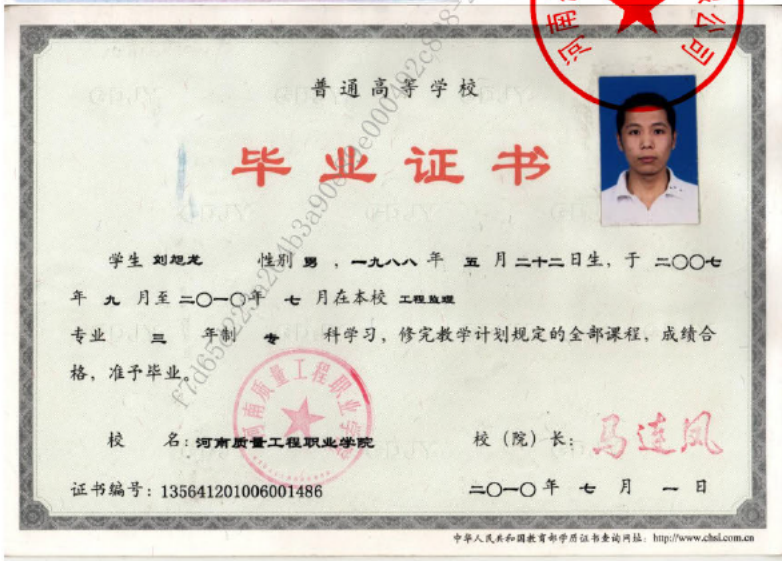 普通高等学校
毕业证书
学生 刘旭龙 性别 男 ，一九八八 年 五 月二十二日生，于 二〇〇七
年 九 月至二〇一〇年 七 月在本校 工程监理
专业 三 年制 专 科学习，修完教学计划规定的全部课程，成绩合
格，准予毕业。
河南质量工程职业学院
校 名：河南质量工程职业学院 校（院）长：马连凤
证书编号：135641201006001486 二〇一〇 年 七 月 一 日
中华人民共和国教育部学历证书查询网址：http://www.chsi.com.cn